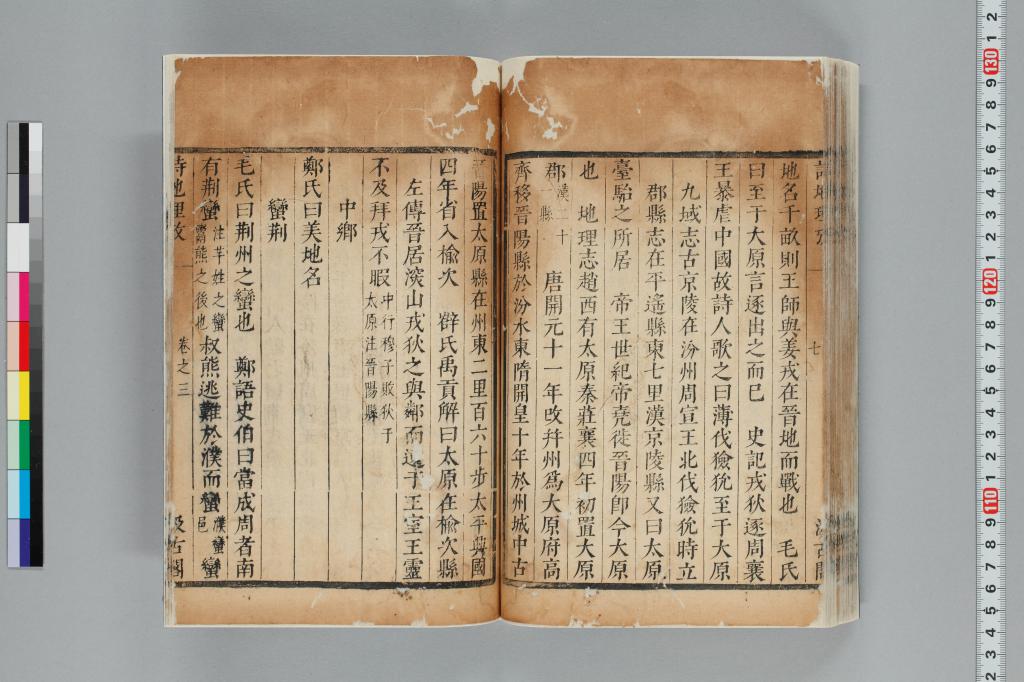 地名千畝則王師與姜戎在晉地而戰也　毛氏
曰至于大原言逐出之而已　史記戎狄逐周襄
王暴虐中國故詩人歌之曰薄伐獫狁至于大原
九域志古京陵在汾州周宣王北伐獫狁時立
郡縣志在平遙縣東七里漢京陵縣又曰太原
臺駘之所居　帝王世紀帝堯徙晉陽卽今大原
也　地理志趙西有太原秦莊襄四年初置大原
郡漢二十一縣　唐開元十一年改幷州爲大原府高
齊移晉陽縣於汾水東隋開皇十年於州城中古
晉陽置太原縣在州東二里百六十步太平興國
四年省入楡次　薛氏禹貢解曰太原在楡次縣
左傳晉居深山戎狄之與鄰而遠于王室王靈
不及拜戎不暇中行穆子敗狄于太原注晉陽縣
中鄉
鄭氏曰美地名
蠻荆
毛氏曰荆州之蠻也　鄭語史伯曰當成周者南
有荆蠻注芊姓之蠻鬻熊之後也叔熊逃難於濮而蠻濮蠻邑　蠻
詩地理攷　卷之三　汲古閣